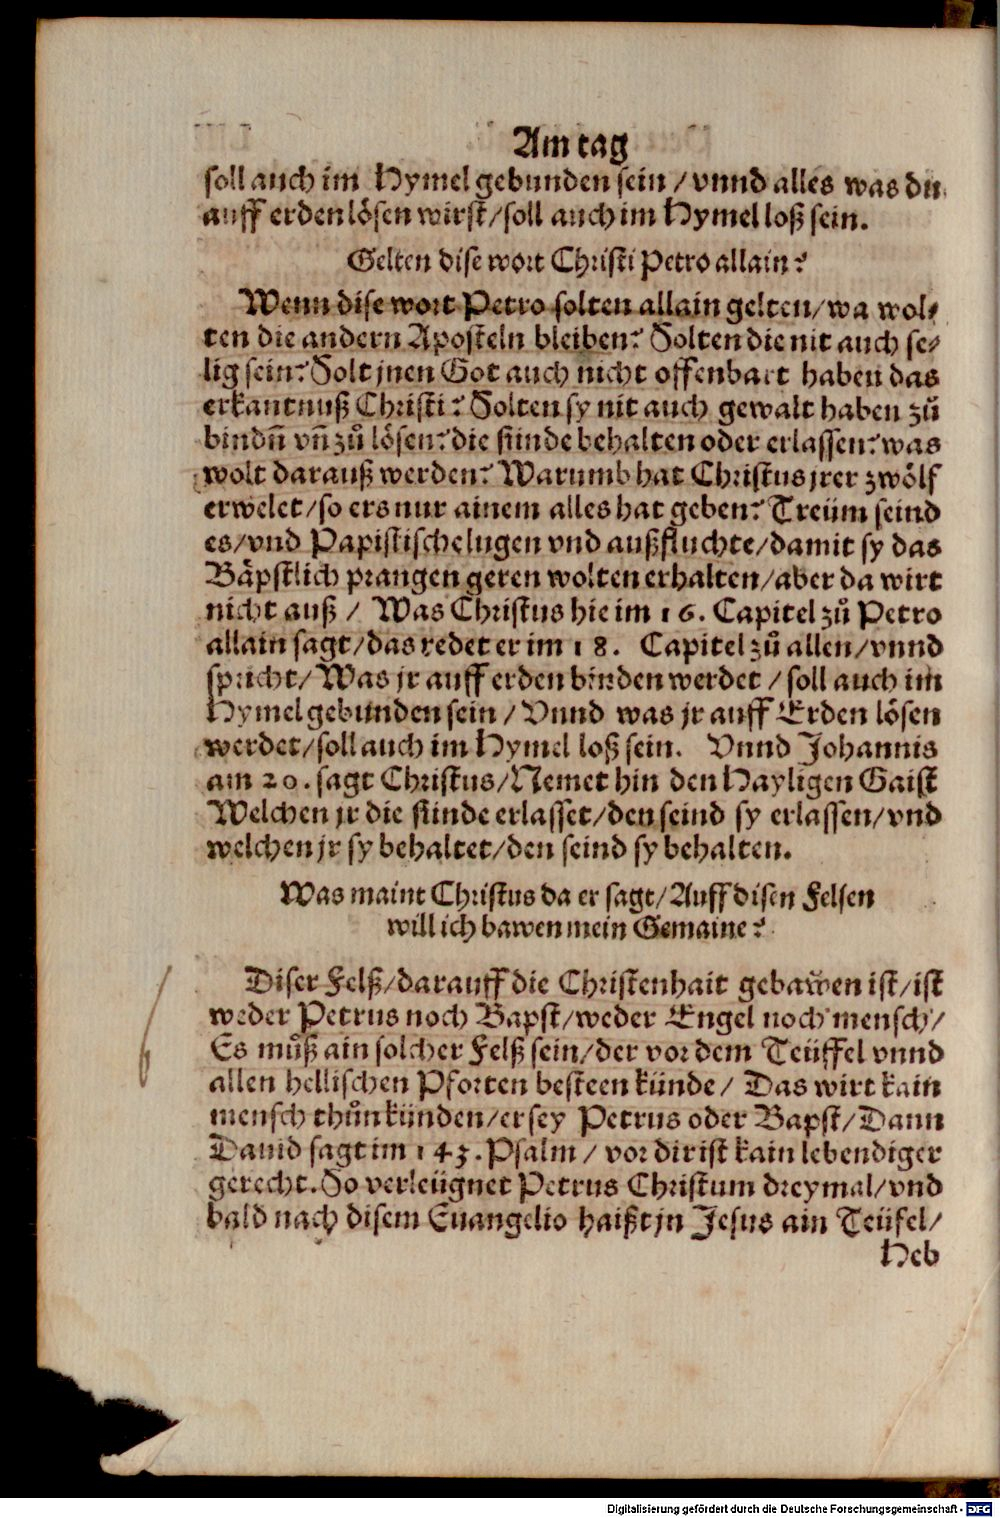 Am tag
soll auch im Hymel gebunden sein / vnnd alles was du
auff erden lösen wirst/soll auch im Hymel loß sein.
Gelten dise wort Christi Petro allain?
Wenn dise wort Petro solten allain gelten/wa wol-
ten die andern Aposteln bleiben? Solten die nit auch se-
lig sein? Solt jnen Got auch nicht offenbart haben das
erkantnuß Christi? Solten sy nit auch gewalt haben zů
bindn̄ vn̄ zů lösen? die sünde behalten oder erlassen? was
wolt darauß werden? Warumb hat Christus jrer zwölf
erwelet/so ers nur ainem alles hat geben? Treüm seind
es/vnd Papistische lugen vnd außfluchte/damit sy das
Bäpstlich prangen geren wolten erhalten/aber da wirt
nicht auß / Was Christus hie im 16. Capitel zů Petro
allain sagt/das redet er im 18. Capitel zů allen/vnnd
spricht/Was jr auff erden binden werdet / soll auch im
Hymel gebunden sein / Vnnd was jr auff Erden lösen
werdet/soll auch im Hymel loß sein. Vnnd Johannis
am 20. sagt Christus/Nemet hin den Hayligen Gaist
Welchen jr die sünde erlasset/den seind sy erlassen/vnd
welchen jr sy behaltet/den seind sy behalten.
Was maint Christus da er sagt/Auff disen Felsen
will ich bawen mein Gemaine?
Diser Felß/darauff die Christenhait gebawen ist/ist
weder Petrus noch Bapst/weder Engel noch mensch/
Es můß ain solcher Felß sein/der vor dem Teüffel vnnd
allen hellischen Pforten besteen künde / Das wirt kain
mensch thůn künden/er sey Petrus oder Bapst/Dann
Dauid sagt im 143. Psalm / vor dir ist kain lebendiger
gerecht. So verleügnet Petrus Christum dreymal/vnd
bald nach disem Euangelio haißt jn Jesus ain Teüfel/
Heb
Digitalisierung gefördert durch die Deutsche Forschungsgemeinschaft - DFG